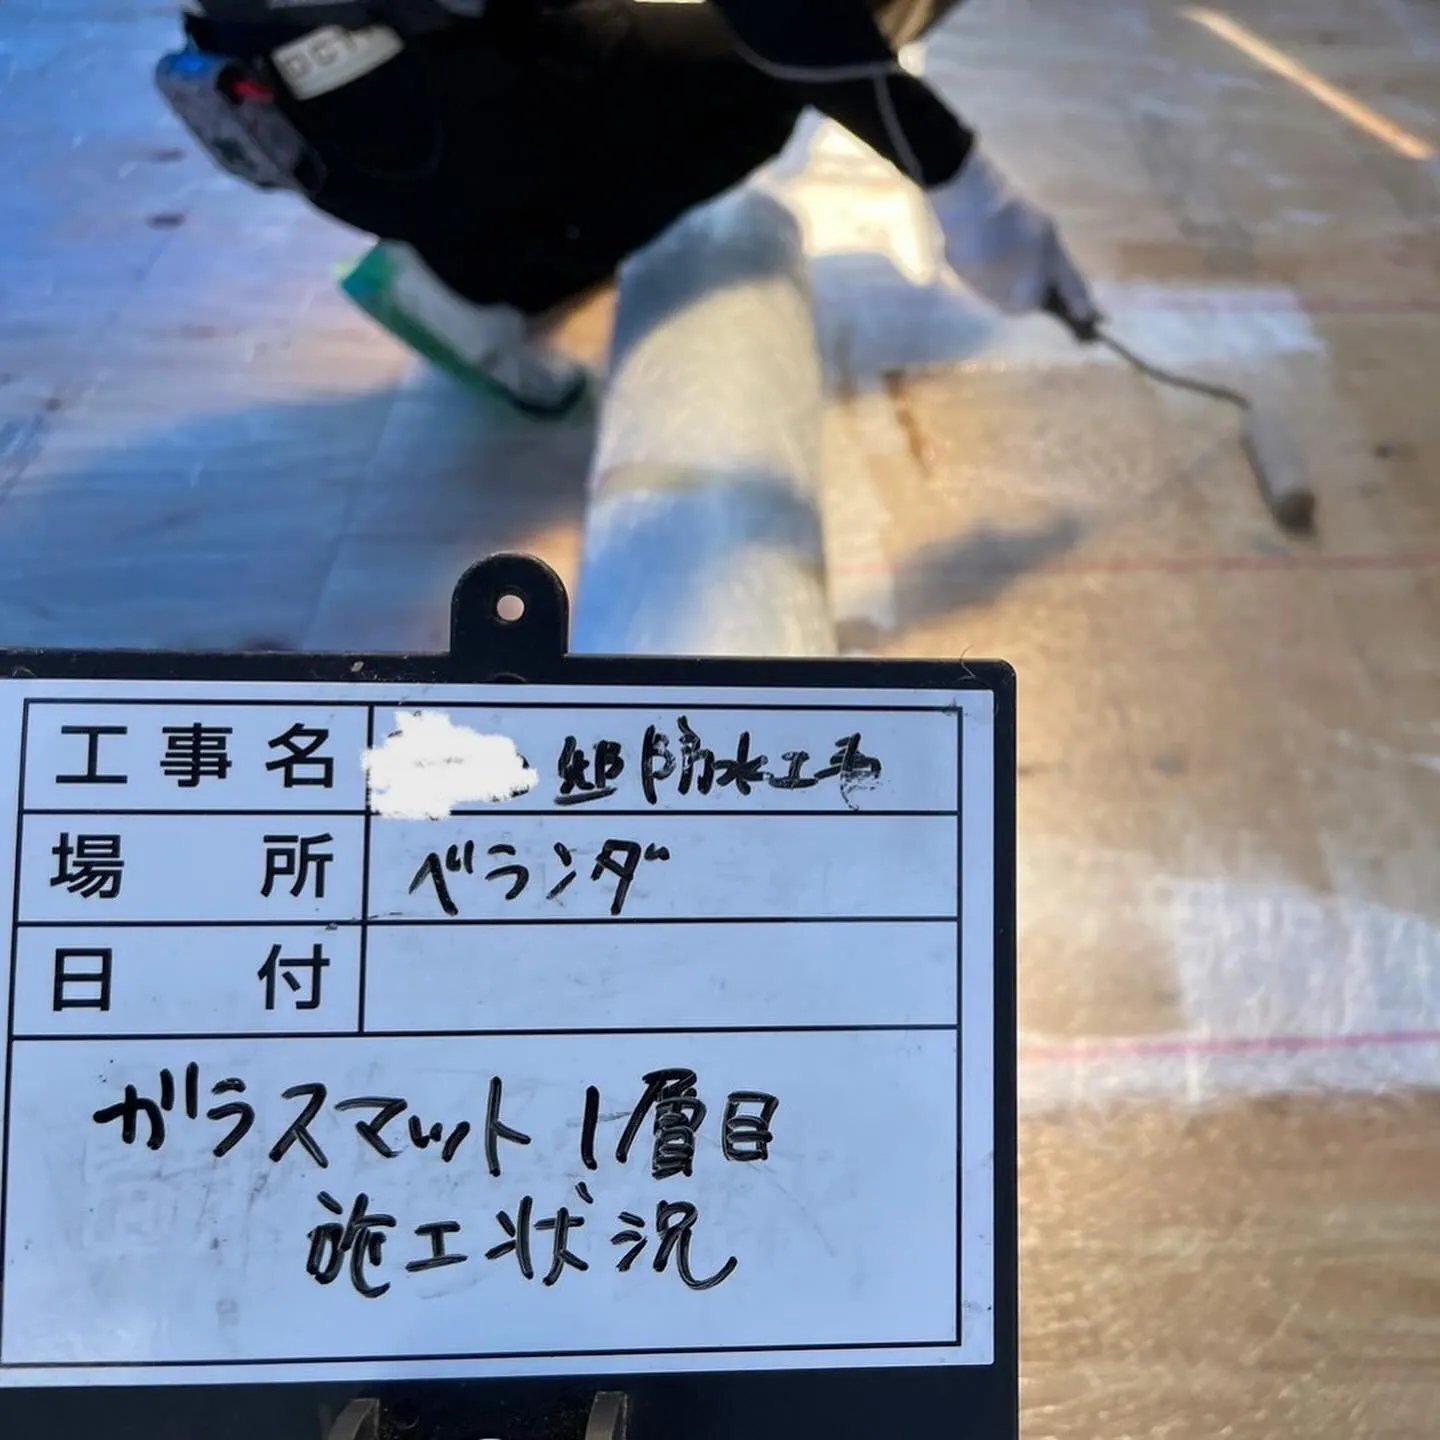 工事名 邸防水工事
場所 ベランダ
日付
ガラスマット1層目
施工状況